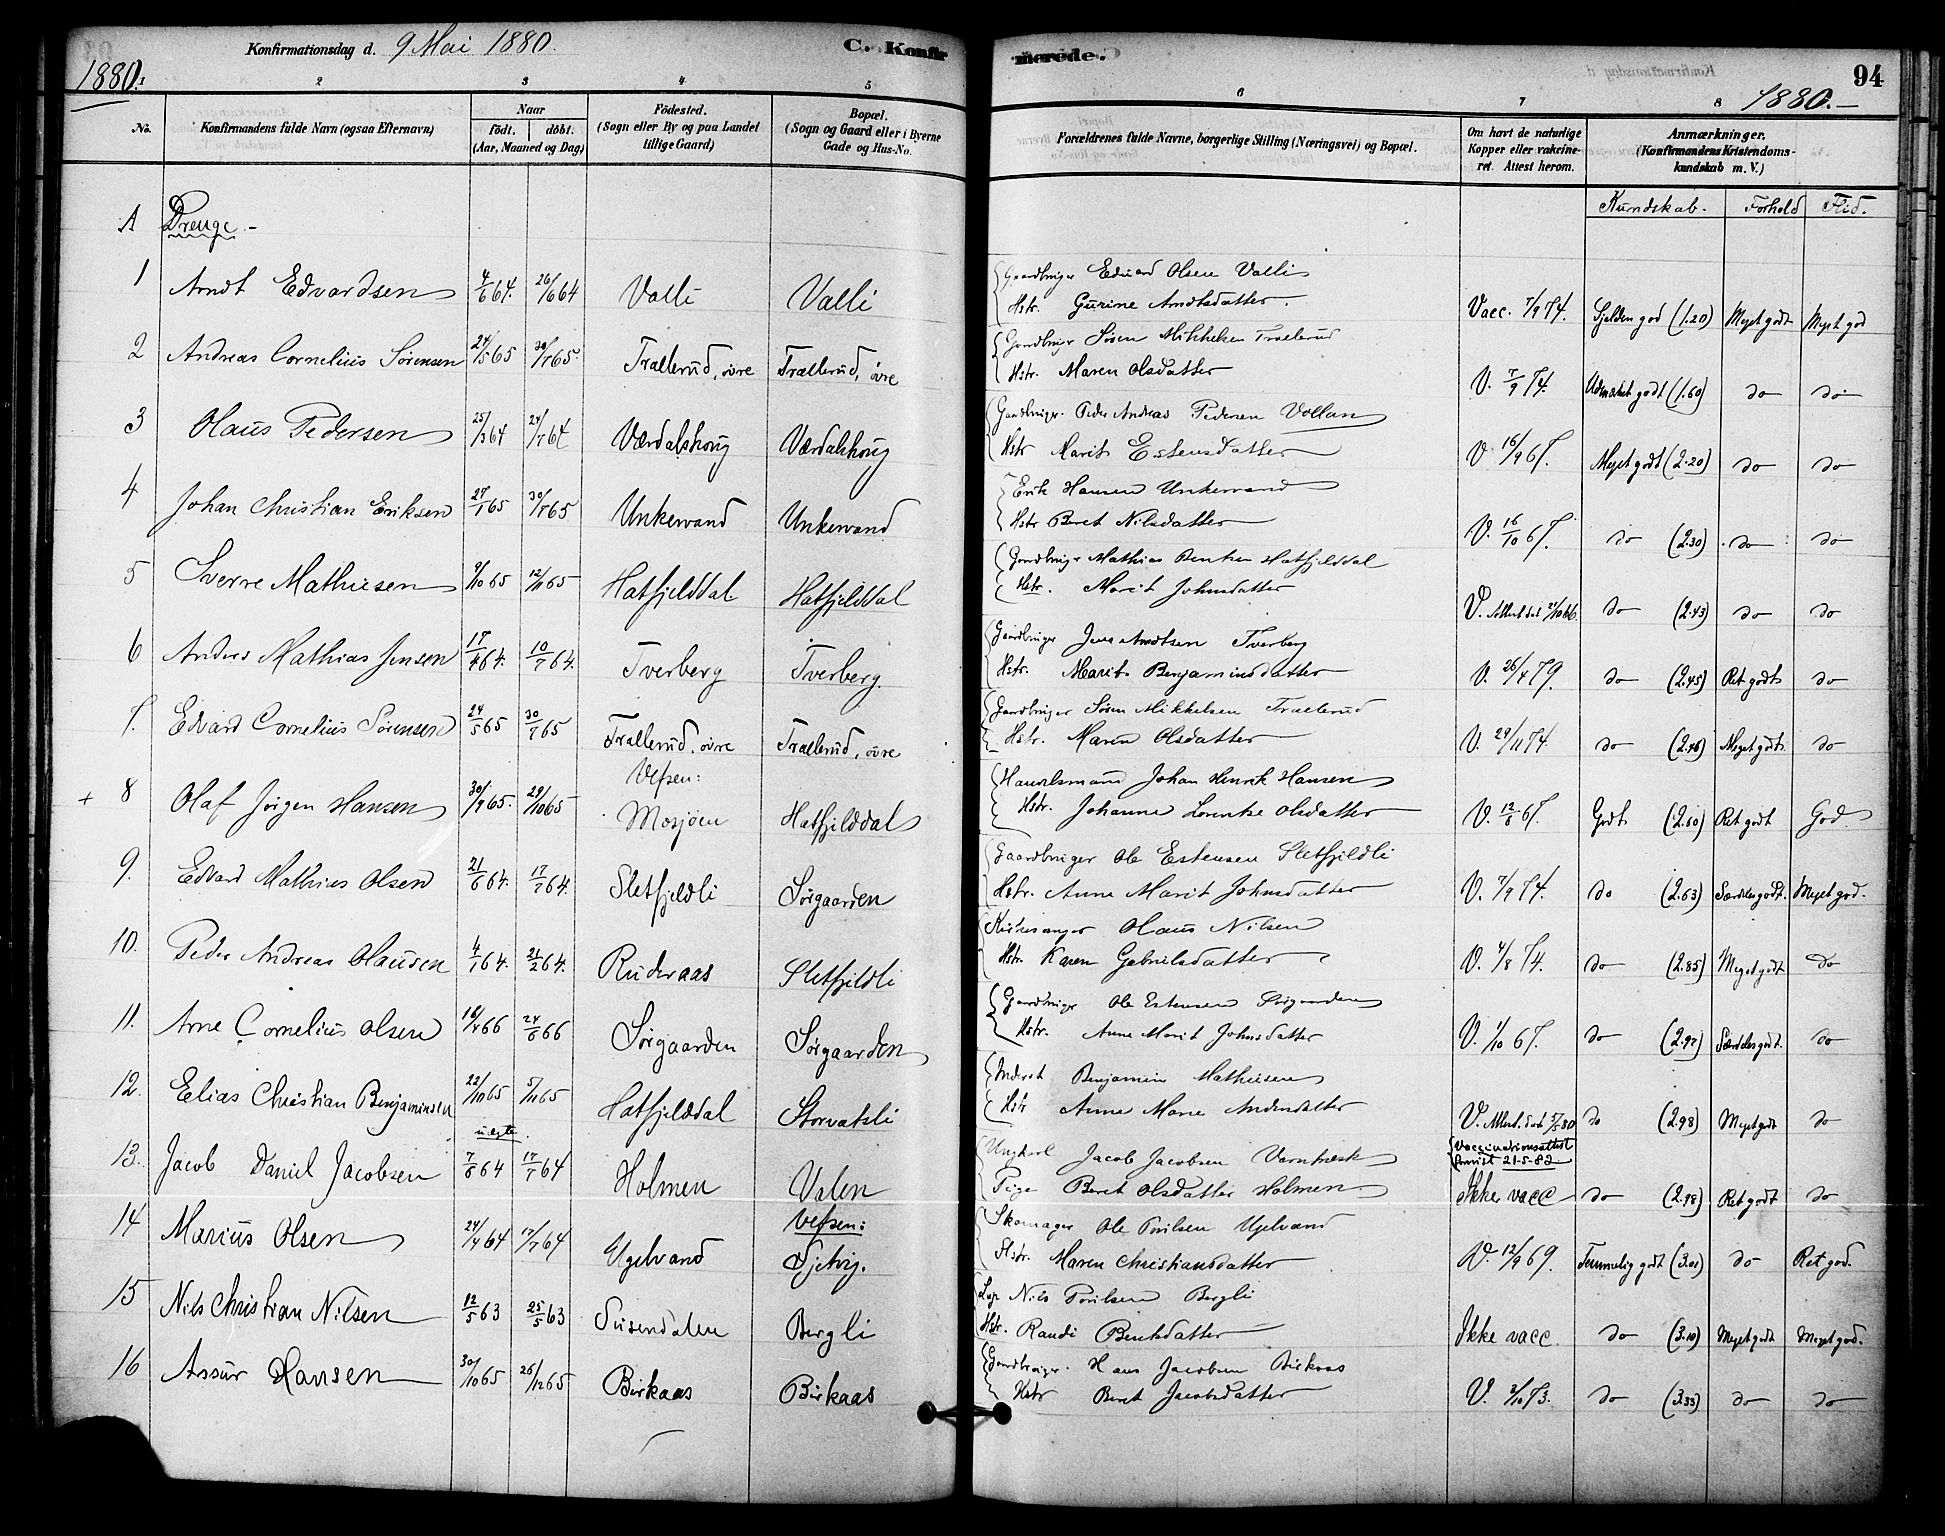 Konfirmationsdag d. 9 Mai 1880.
C. Konfirmerede.
94
1880.
1880.—
1 2 3 4 5 6 7 8
No.
Konfirmandens fulde Navn (ogsaa Efternavn)
Naar
födt. döbt.
(Aar, Maaned og Dag)
Födested.
(Sogn eller By og paa Landet
tillige Gaard)
Bopæl.
(Sogn og Gaard eller i Byerne
Gade og Hus-No.
Forældrenes fulde Navne, borgerlige Stilling (Næringsvei) og Bopæl.
Om havt de naturlige
Kopper eller vakcine-
ret. Attest herom.
Anmærkninger.
(Konfirmandens Kristendoms-
kundskab m. V.)
Kundskab. Forhold Flid.
A Drenge.-
Gaardbruger Edvard Olsen Valli
1 Arndt Edvardsen 4/6 64. 26/6 64 Valli Valli Hstr. Gurine Arndtsdatter. Vacc. 7/9 74. Sjelden god (1.20) Meget godt Meget god
Gaardbruger Sören Mikkelsen Trællerud
2 Andreas Cornelius Sörensen 24/5 65 30/7 65. Trællerud, övre Trællerud, övre Hstr. Maren Olsdatter V. 7/9 74. Udmærket godt (1.60) do do
Gaardbruger. Peder Andreas Pedersen Vollan
3 Olaus Pedersen 25/3 64 24/7 64 Værdalshoug Værdalshoug Hstr Marit Estensdatter V 16/9 67. Meget godt (2.20) do do
Erik Hansen Unkervand
4 Johan Christian Eriksen 27/1 65 30/7 65 Unkervand Unkervand Hstr Beret Nilsdatter V. 16/10 67. do (2.30) do do
Gaardbruger Mathias Bentsen Hatfjelddal
5 Sverre Mathiesen 9/10 65 12/11 65 Hatfjelddal Hatfjelddal Hstr. Marit Johnsdatter V. do (2.43) do do
Gaardbruger Jens Arndtsen Tverberg
6 Anders Mathias Jensen 17/4 64. 10/7 64. Tverberg Tverberg. Hstr. Marit Benjaminsdatter V. 26/4 79. do (2.45) Ret godt do
Gaardbruger Sören Mikkelsen Trællerud
7. Edvard Cornelius Sörensen 24/5 65 30/7 65 Trællerud, övre Trællerud, övre Hstr. Maren Olsdatter V. 29/11 74. do (2.46) Meget godt do
Vefsen: Handelsmand Johan Henrik Hansen
+ 8 Olaf Jörgen Hansen 30/9 65. 29/10 65 Mosjöen Hatfjelddal Hstr. Johanna Lorentse Olsdatter V. 12/6 67. Godt (2.60) Ret godt God
Gaardbruger Ole Estensen Sletfjeldli
9. Edvard Mathias Olsen 21/6 64. 17/7 64. Sletfjeldli Sörgaarden Hstr. Anne Marit Johnsdatter V. 7/9 74. do (2.63) Særdeles godt. Meget god.
Kirkesanger Olaus Nilsen
10. Peder Andreas Olausen 4/1 64. 21/2 64. Ruderaas Sletfjeldli Hstr. Karen Gabrielsdatter V. 4/8 74. do (2.85) Meget godt do
Gaardbruger Ole Estensen Sörgaarden
11. Arne Cornelius Olsen 16/4 66 24/6 66 Sörgaarden Sörgaarden Hstr. Anne Marit Johnsdatter V. 1/10 67. do (2.97) Særdeles godt. do
Inderst Benjamin Mathiesen
12. Elias Christian Benjaminsen 22/10 65 5/11 65 Hatfjelddal Storvatsli Hstr Anne Marie Andersdatter V. Attest. dat. 5/5 80 do (2.98) Meget godt do
uægte. Ungkarl Jacob Jacobsen Varntresk Vaccinationsattest
21-5-82
13. Jacob Daniel Jacobsen 7/6 64 17/7 64 Holmen Valen Pige Beret Olsdatter Holmen Ikke vacc do (2.98) Ret godt do
Vefsen: Skomager Ole Poulsen Ugelvand
14 Marius Olsen 24/4 64 17/7 64 Ugelvand Hstr. Maren Christiansdatter V. 12/9 69. Temmelig godt (3.01) do Ret god.
Lap Nils Poulsen Bergli
15 Nils Christian Nilsen 12/5 63 25/5 63 Susendalen Bergli Hstr. Randi Bentsdatter Ikke vacc. do (3.10) Meget godt Meget god.
Gaardbruger. Hans Jacobsen Birkaas
16 Assur Hansen 30/10 65 26/12 65 Birkaas Birkaas Hstr Beret Jacobsdatter V. 2/10 73. do (3.33) do do